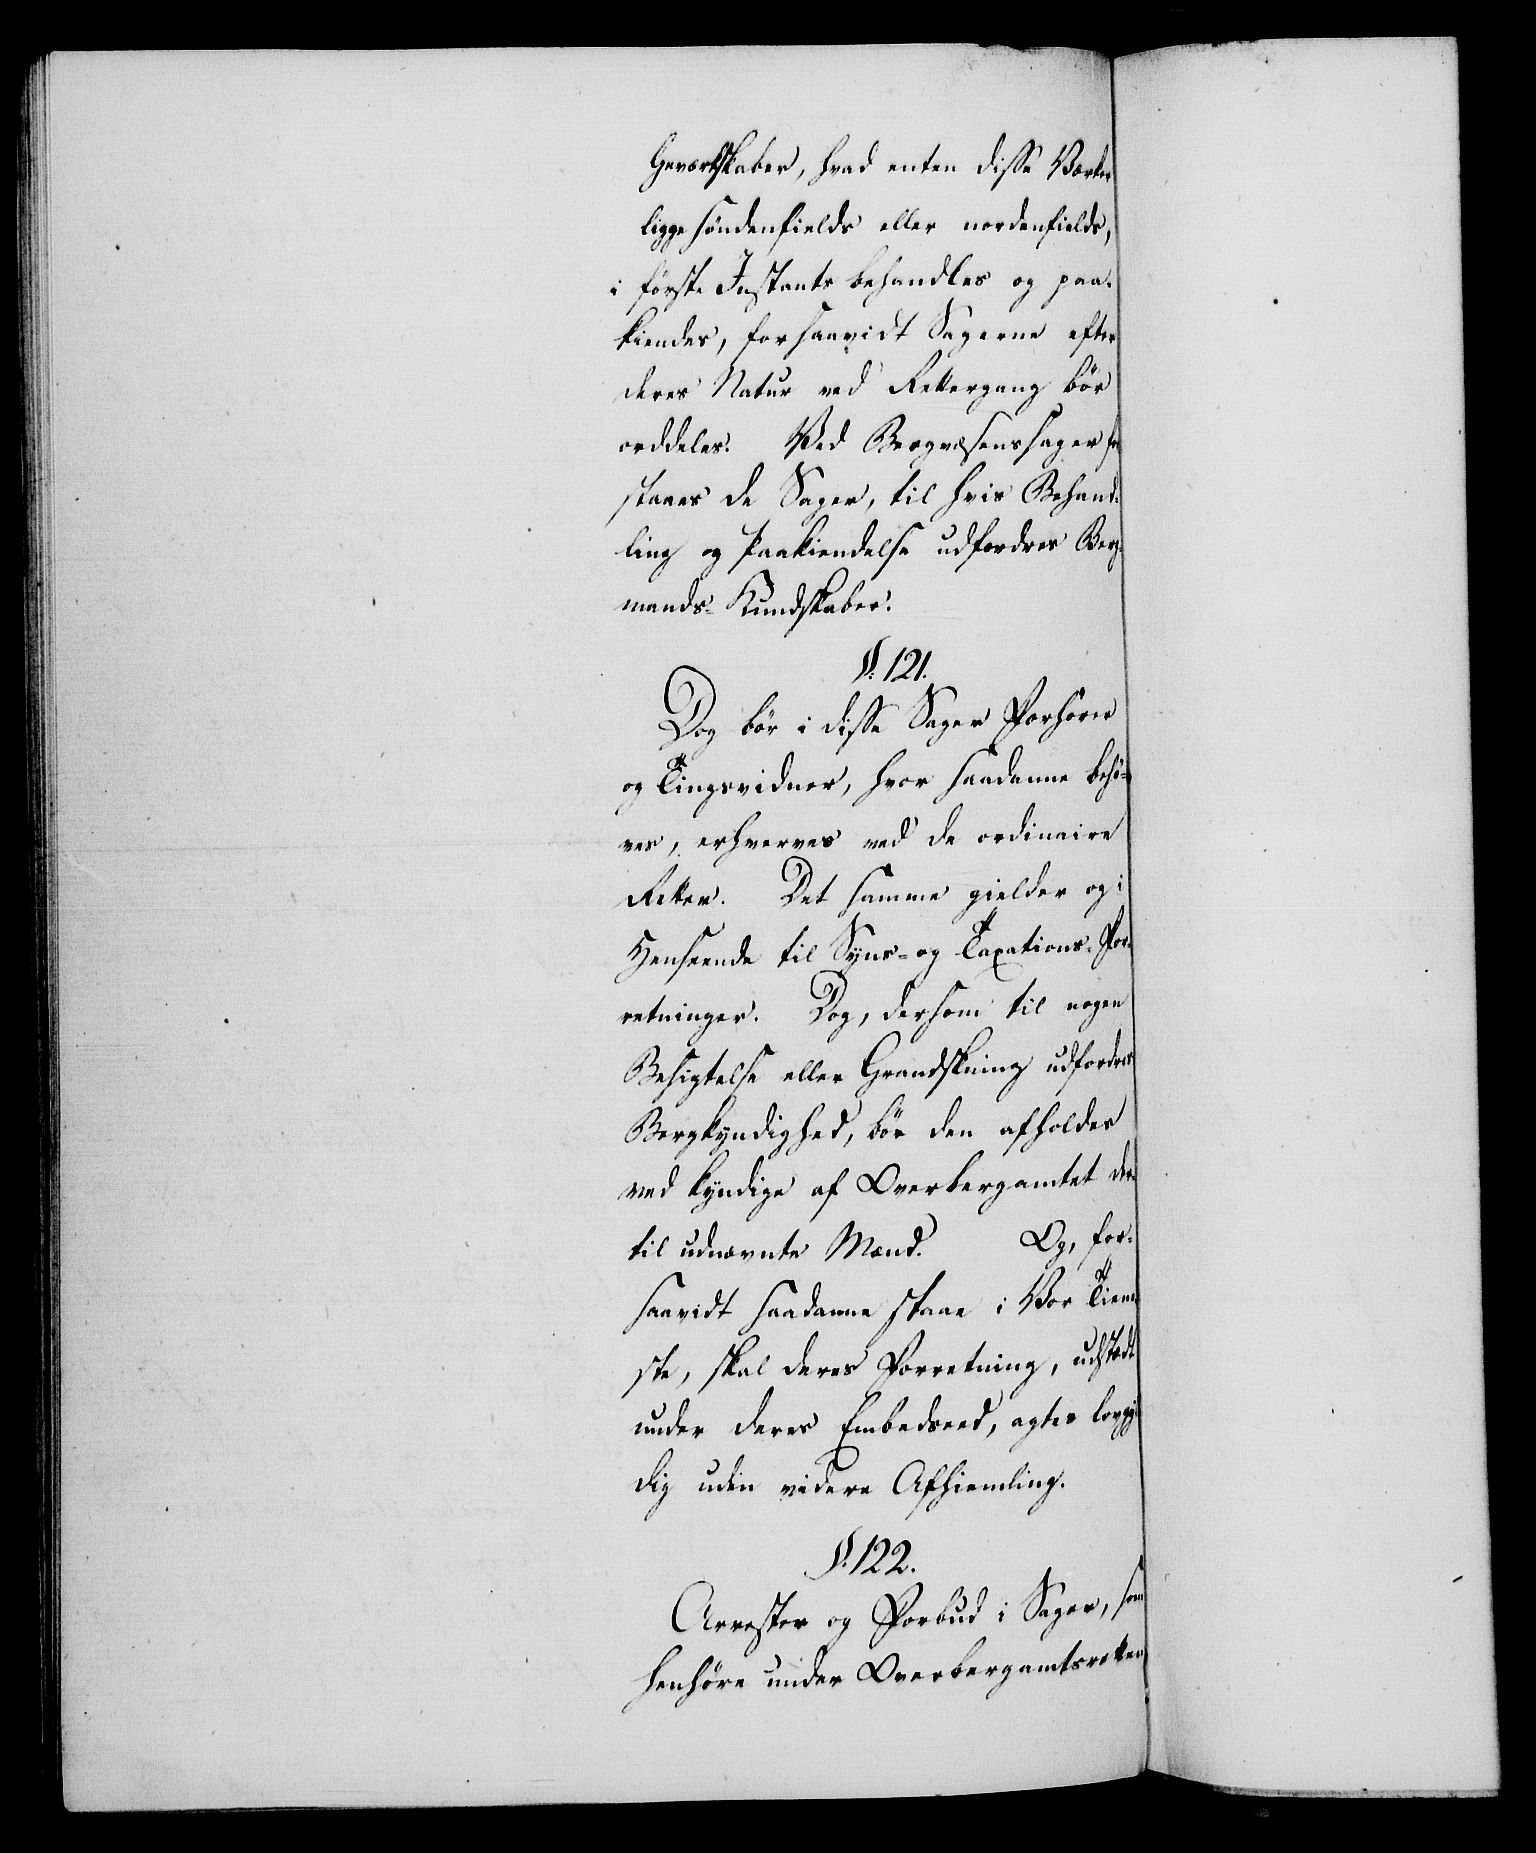 Geværkskaber, hvad enten disse Værker
ligge søndenfields eller nordenfields,
i første Instants behandles og paa-
kiendes, forsaavidt Sagerne efter
deres Natur ved Rettergang bør
orddeles. Ved Bergvæsenssager for
staaes de Sager, til hvis Behand-
ling og Paakiendelse udfordres Berg-
mands-Kundskaber.
§. 121.
Dog bør i disse Sager Forhører
og Tingsvidner, hvor saadanne behø-
ves, erhverves ved de ordinaire
Retter. Det samme gielder og i
Henseende til Syns- og Taxations-For-
retninger. Dog, dersom til nogen
Besigtelse eller Grandskning udfordres
Bergkyndighed, bør den afholdes
ved kyndige af Overbergamtet der-
til udnævnte Mænd. Og, for-
saavidt saadanne staae i Vor Tiene
ste, skal deres Forretning, udstædt
under deres Embedseed, agtes lovgyl
dig uden videre Afhiemling.
§. 122.
Arrester og Forbud i Sager, som
henhøre under Overbergamtsretten